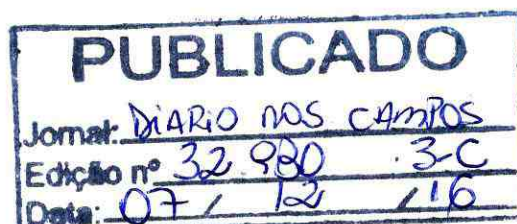 PUBLICADO
Jornal: DIARIO DOS CAMPOS
Edição nº 32.980 3-C
Data: 07 / 12 / 16